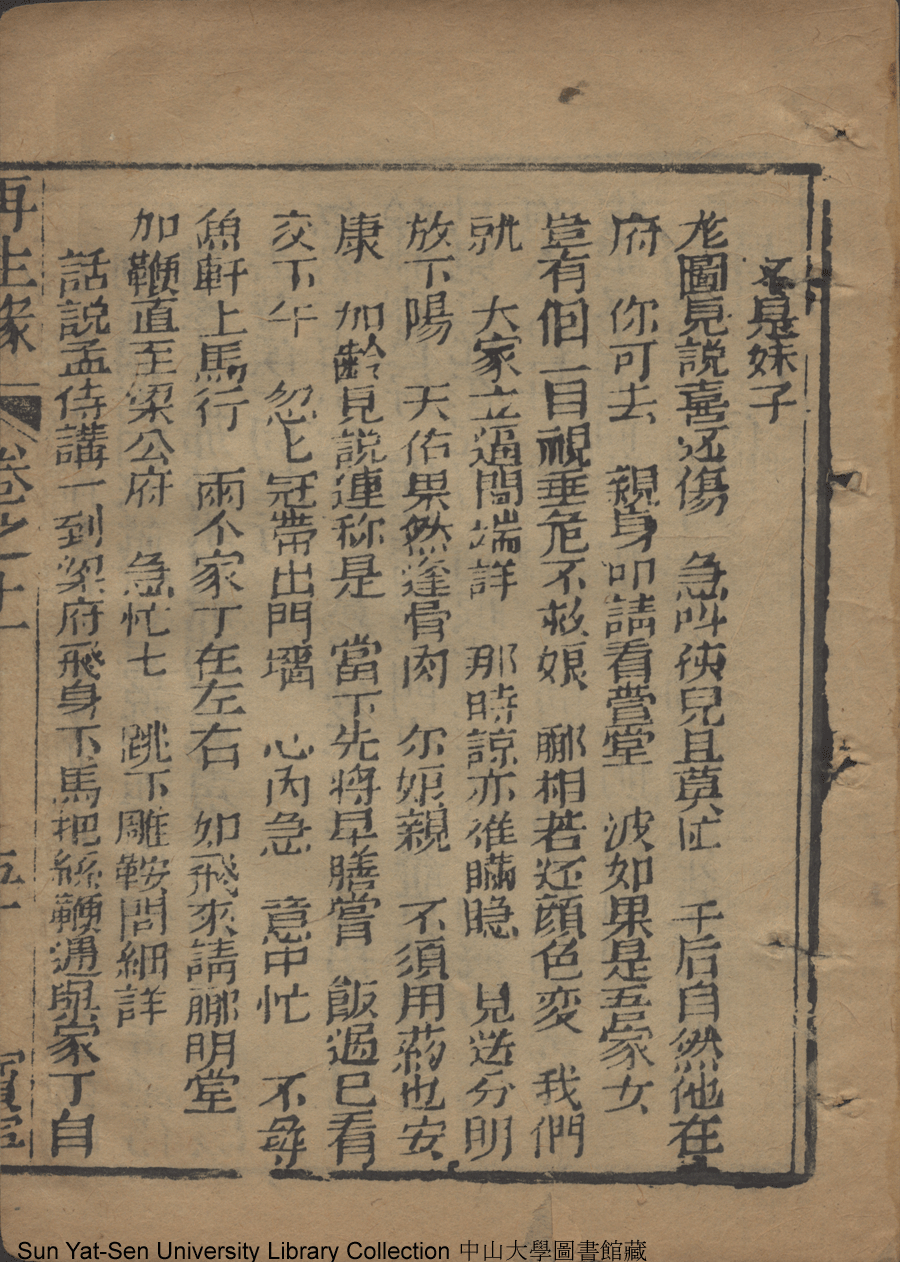 是妹子
龙圖見説喜还傷　急叫孩兒且莫忙　午后自然他在
府　你可去　親身叩請看萱堂　波如果是吾家女
豈有個一目視垂危不救娘　郦相若还顔色変　我們
就　大家立逼問端詳　那時諒亦难瞞隐　見送分明
放下陽　天佑果然逢骨肉　尔娘親　不須用药也安
康　加齡見説連称是　當下先將早膳嘗　飯過已看
交下午　忽匕冠帶出門墻　心内急　意中忙　不毎
魚軒上馬行　兩个家丁在左右　如飛來請郦明堂
加鞭直至梁公府　急忙七　跳下雕鞍問細詳
話説孟侍講一到梁府飛身下馬把絲鞭遞與家丁自
再生緣　卷之十一　五十　寶寧
Sun Yat-Sen University Library Collection 中山大學圖書館藏